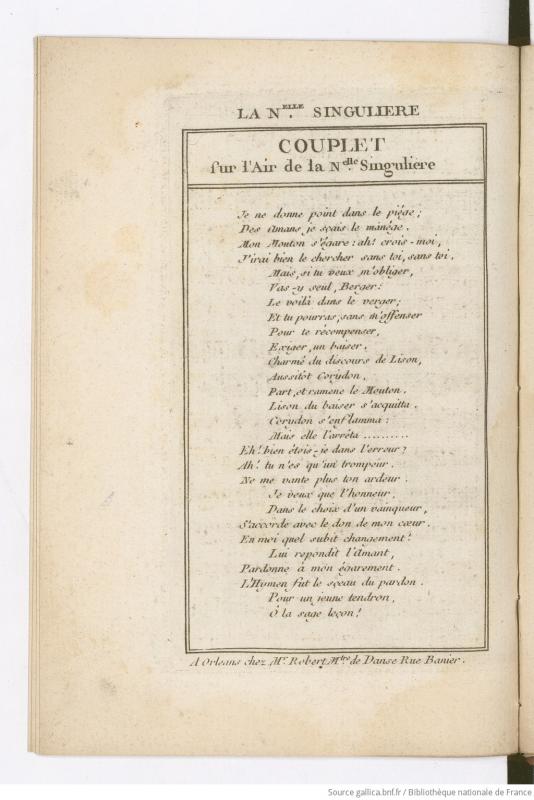 LA N.ELLE SINGULIERE
COUPLET
sur l'Air de la N.elle Singulière
Je ne donne point dans le piége;
Des Amans je sçais le manége.
Mon Mouton s'égare: ah! crois-moi,
J'irai bien le chercher sans toi, sans toi.
Mais, si tu veux m'obliger,
Vas-y seul, Berger:
Le voilà dans le verger;
Et tu pourras, sans m'offenser
Pour te récompenser,
Exiger, un baiser.
Charmé du discours de Lison,
Aussitôt Corydon,
Part, et ramene le Mouton.
Lison du baiser s'acquitta.
Corydon s'enflamma:
Mais elle l'arrêta ..........
Eh! bien étois-je dans l'erreur?
Ah! tu n'es qu'un trompeur.
Ne me vante plus ton ardeur.
Je veux que l'honneur,
Dans le choix d'un vainqueur,
S'accorde avec le don de mon cœur.
En moi quel subit changement!
Lui repondit l'Amant,
Pardonne à mon égarement.
L'Hymen fut le sçeau du pardon.
Pour un jeune tendron,
Ô la sage leçon!
A Orleans chez Mr. Robert Mtre de Danse Rue Banier.
Source gallica.bnf.fr / Bibliothèque nationale de France